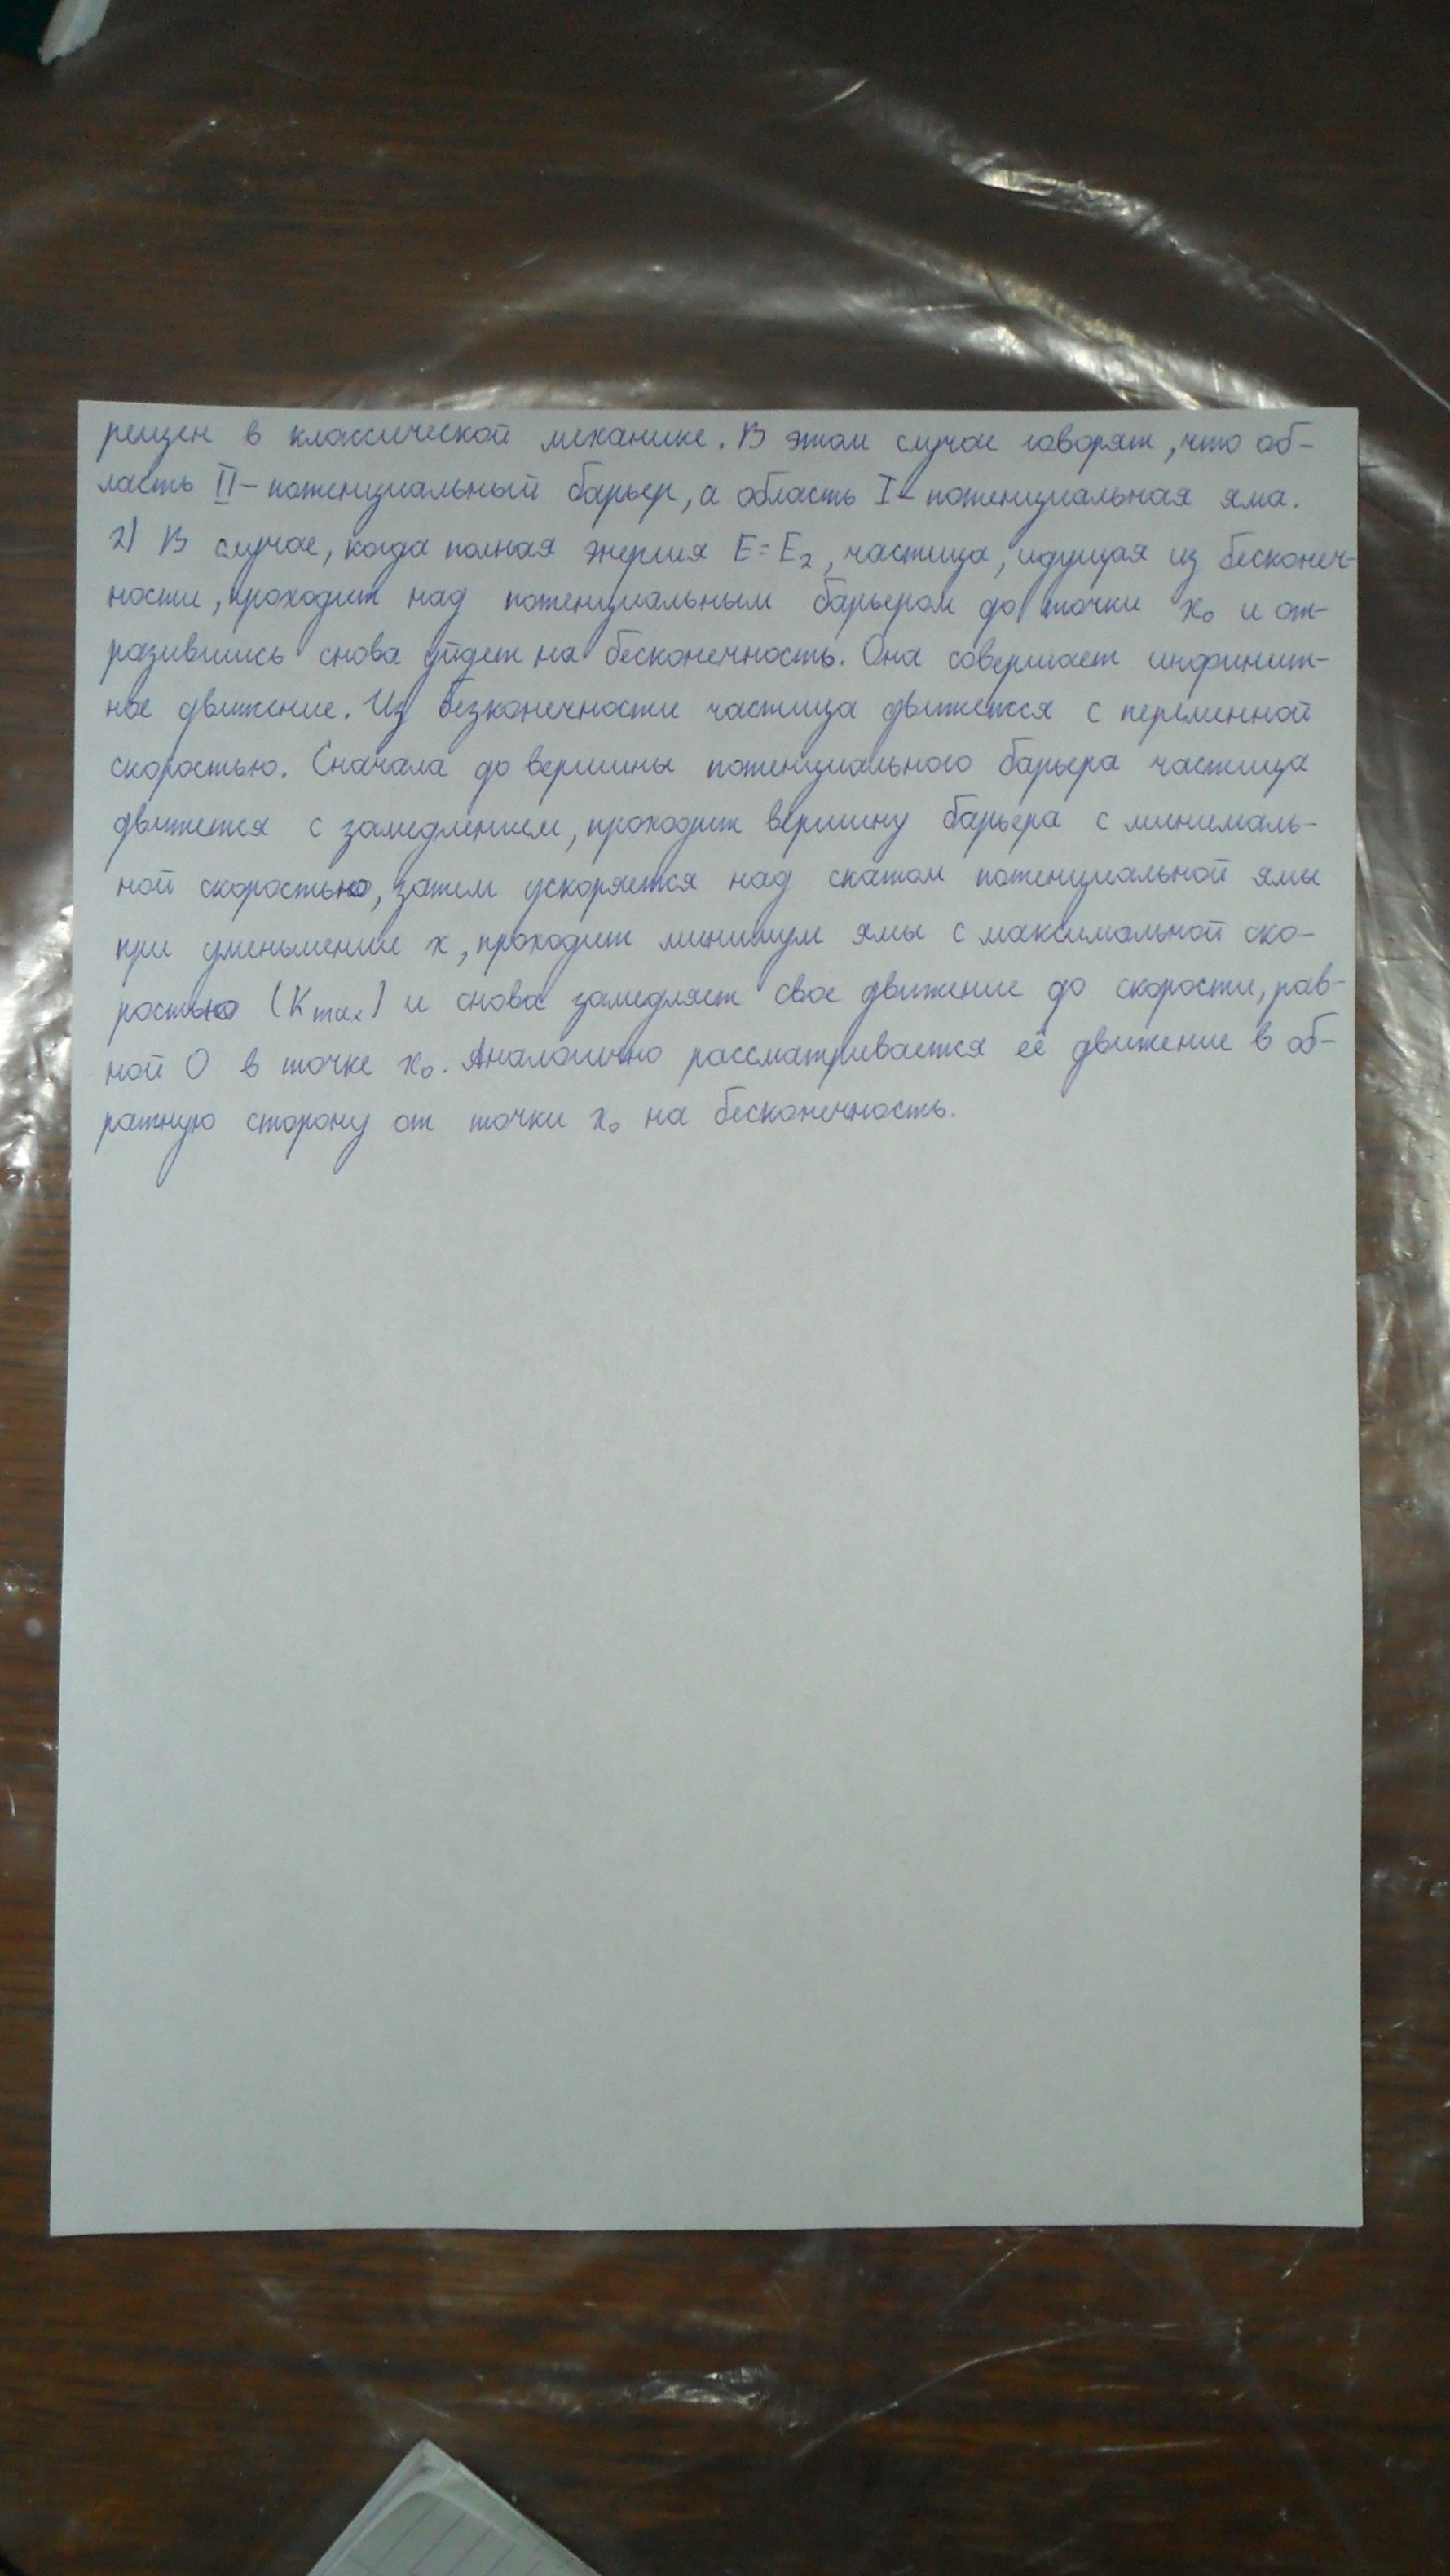 рещен в классической механике. В этом случае говорят, что об-
ласть II - потенциальный барьер, а область I - потенциальная яма.
2) В случае, когда полная энергия E = E₂, частица, идущая из бесконеч-
ности, проходит над потенциальным барьером до точки x₀ и от-
разившись снова уйдет на бесконечность. Она совершает инфинит-
ное движение. Из безконечности частица движется с переменной
скоростью. Сначала до вершины потенциального барьера частица
движется с замедлением, проходит вершину барьера с минималь-
ной скоростью, затем ускоряется над скатом потенциальной ямы
при уменьшении x, проходит минимум ямы с максимальной ско-
ростью (Kmax) и снова замедляет свое движение до скорости, рав-
ной 0 в точке x₀. Аналогично рассматривается её движение в об-
ратную сторону от точки x₀ на бесконечность.